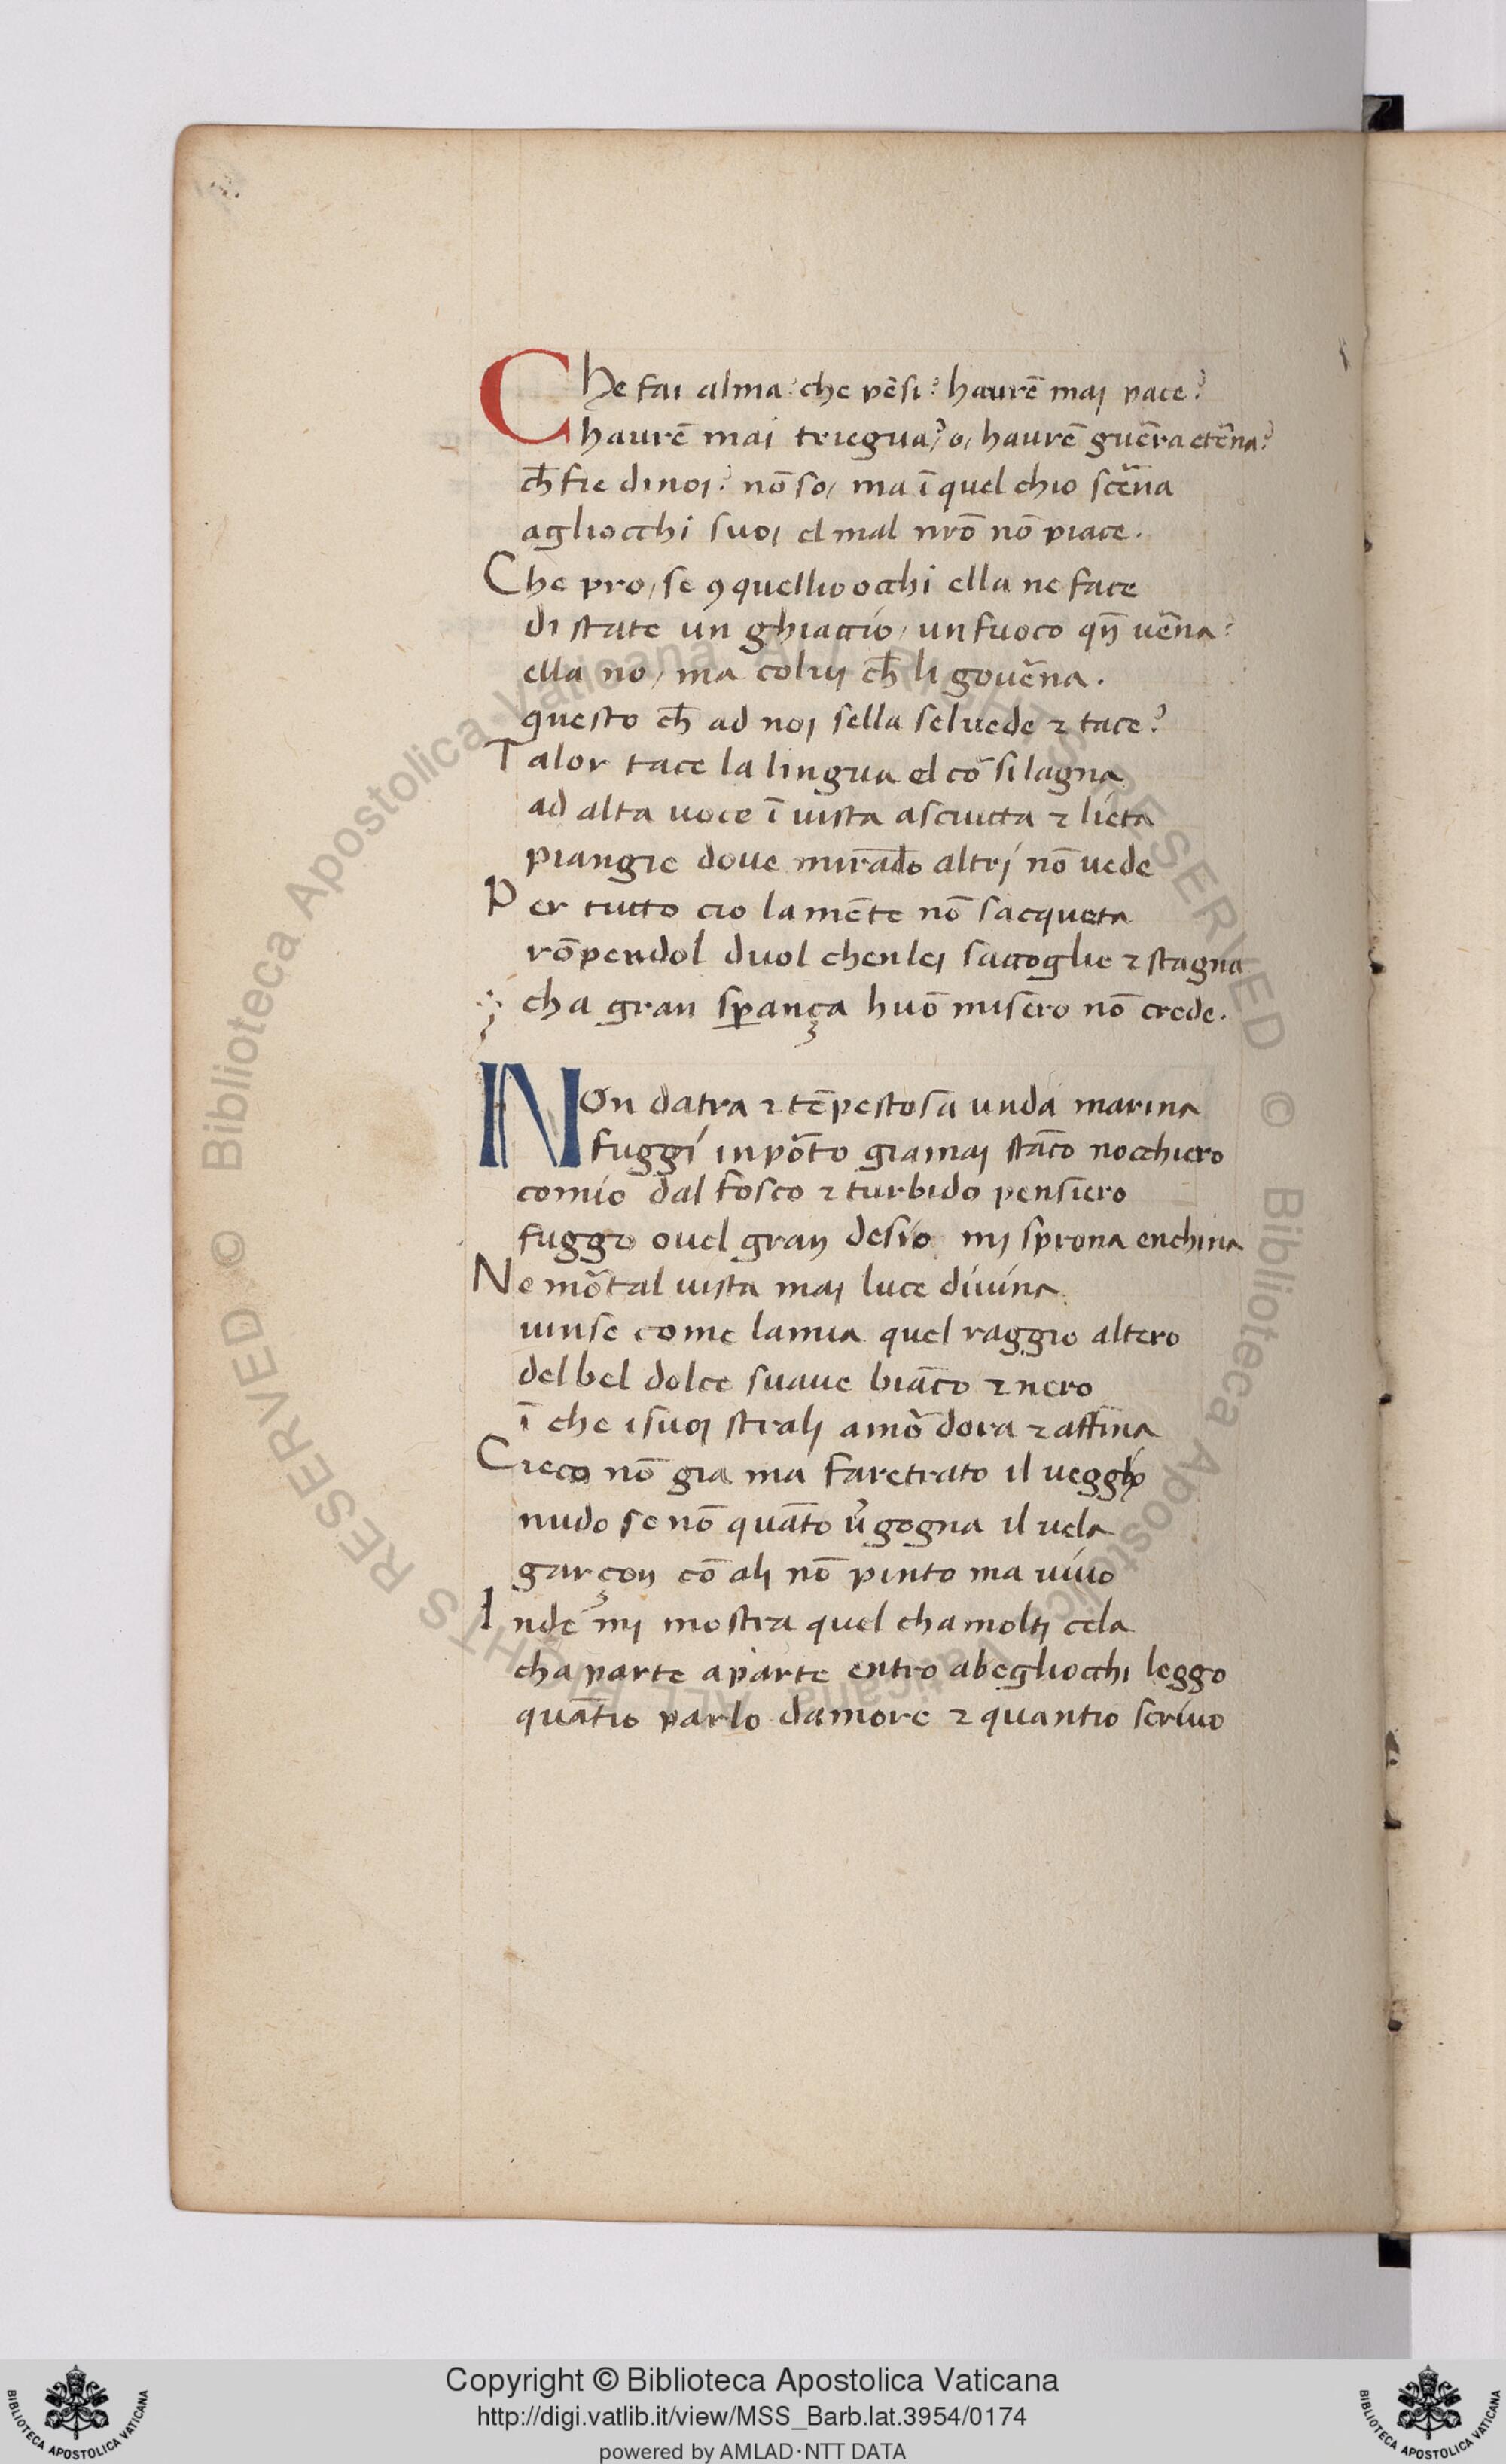 Che fai alma? che pēsi? haurē maj pace?
haurē mai triegua? o, haurē guēra etēna?
ch̄ fie dinoj? nō so, ma ī quel chio scēna
agliocchi suoj el mal nrō nō piace.
Che pro, se ꝯ quellio occhi ella ne face
di state un ghiaccio, un fuoco qn̄ uēna?
ella no, ma coluj ch̄ li gouēna.
questo ch̄ ad noj sella seluede ⁊ tace?
Talor tace la lingua el cō si lagna
ad alta uoce ī uista asciutta ⁊ lieta
piangie doue mirādo altrj nō uede
Per tutto cio la mēte nō sacqueta
rōpendol duol chenlej saccoglie ⁊ stagna
cha gran sꝑança huō misero nō crede.
NOn datra ⁊ tēpestosa unda marina
fuggi in pōto giamaj stāco nocchiero
comio dal fosco ⁊ turbido pensiero
fuggo ouel gran desio mj sprona enchina
Ne mōtal uista maj luce diuina
uinse come lamia quel raggio altero
del bel dolce suaue biāco ⁊ nero
ī che i suoj stralj amō dora ⁊ affina
Cieco nō gia ma faretrato il ueggho
nudo se nō quāto u̓gogna il uela
garçon cō alj nō pinto ma uiuo
Inde mj mostra quel cha moltj cela
cha parte a parte entro abegliocchi leggo
quātio parlo damore ⁊ quantio scriuo
© Biblioteca Apostolica Vaticana ALL RIGHTS RESERVED © Biblioteca Apostolica Vaticana ALL RIGHTS RESERVED
Copyright © Biblioteca Apostolica Vaticana
http://digi.vatlib.it/view/MSS_Barb.lat.3954/0174
powered by AMLAD·NTT DATA
BIBLIOTECA APOSTOLICA VATICANA
BIBLIOTECA APOSTOLICA VATICANA